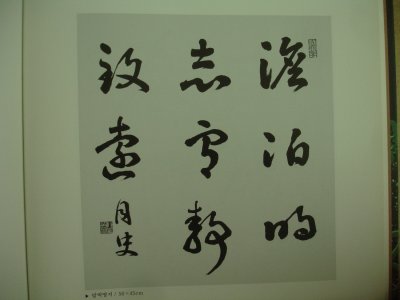 澹泊明
志寧靜
致遠
月史
담박명지 / 50×45cm